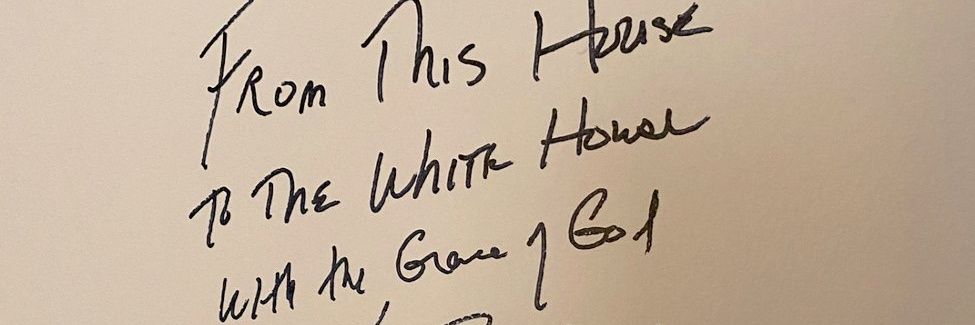 From This House
To The White House
with the Grace of God